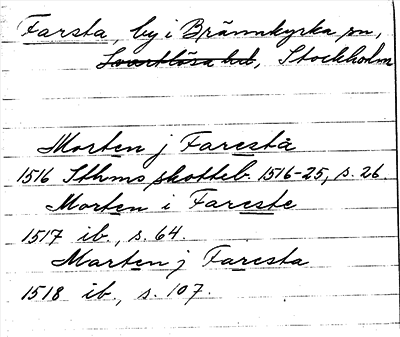 Farsta, by i Brännkyrka sn,
Svartlösa hd, Stockholm
Morten j Farestä
1516 Sthms skotteb. 1516-25, s. 26.
Morten i Fareste
1517 ib., s. 64.
Marten j Faresta
1518 ib., s. 107.